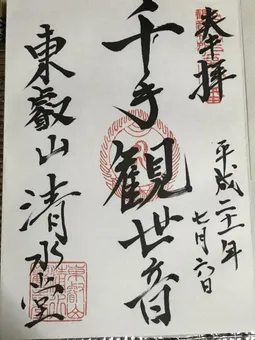 奉拝
平成二十一年
七月六日
千手観世音
東叡山清水堂